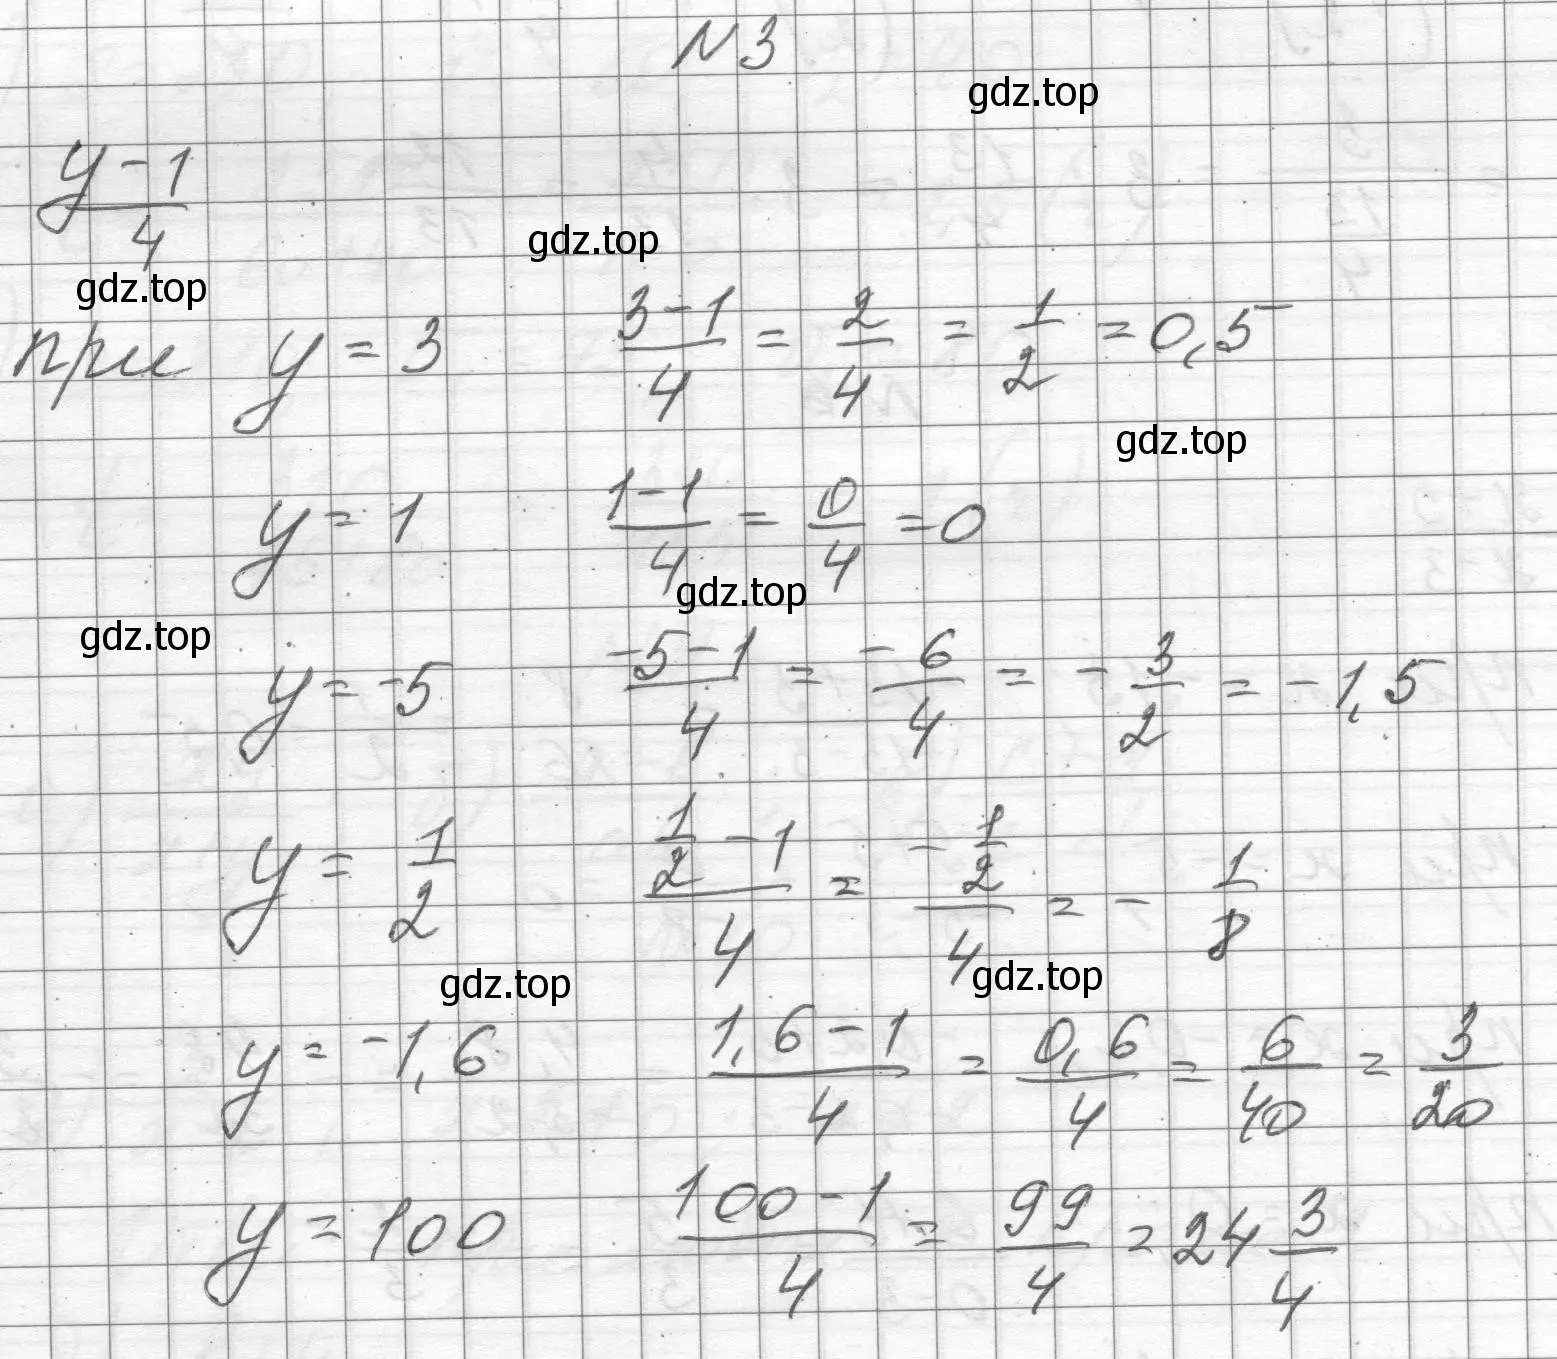 N 3
gdz.top
(y - 1)/4
gdz.top
gdz.top
при y = 3 (3 - 1)/4 = 2/4 = 1/2 = 0,5
gdz.top
y = 1 (1 - 1)/4 = 0/4 = 0
gdz.top
gdz.top
y = -5 (-5 - 1)/4 = -6/4 = -3/2 = -1,5
y = 1/2 (1/2 - 1)/4 = (-1/2)/4 = -1/8
gdz.top
gdz.top
y = -1,6 (1,6 - 1)/4 = 0,6/4 = 6/40 = 3/20
y = 100 (100 - 1)/4 = 99/4 = 24 3/4